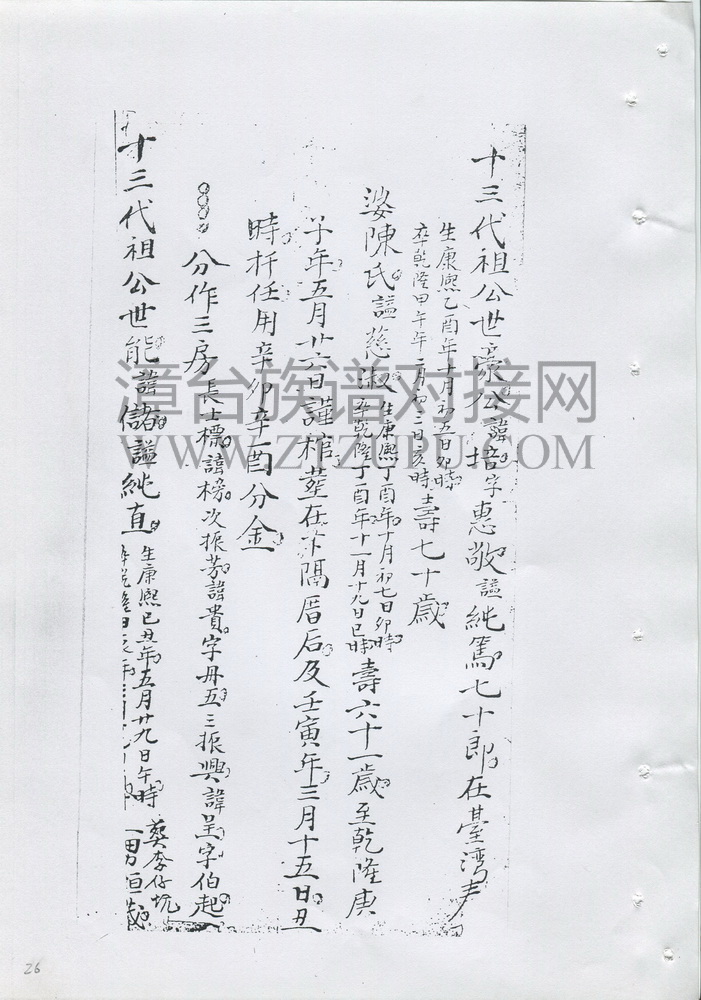 十三代祖公世豪公諱培字惠敬謚純篤七十郎在臺灣卒
生康熙乙酉年十月初五日卯時
卒乾隆甲午年二月初三日亥時壽七十歲
婆陳氏謚慈淑
生康熙丁酉年十月初七日卯時
卒乾隆丁酉年十一月十九日巳時壽六十一歲至乾隆庚
子年五月廿六日謹棺葬在下隔厝后及壬寅年三月十五日丑
時扦任用辛卯辛酉分金
分作三房長士標諱榜次振芳諱貴字丹五三振興諱呈字伯起
十三代祖公世能諱儲謚純直
生康熙己丑年五月廿九日午時
葬李仔坑
一男恒
漳台族谱对接网
WWW.ZTZUPU.COM
26